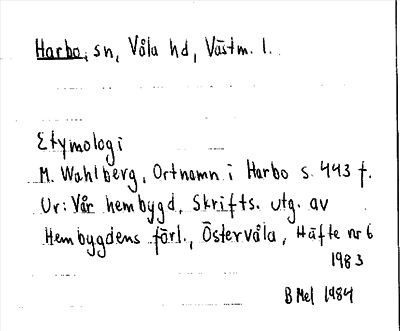 Harbo, sn, Våla hd, Västm. l.
Etymologi
M. Wahlberg, Ortnamn i Harbo s. 443 f.
Ur: Vår hembygd, Skrifts. utg. av
Hembygdens förl., Östervåla, Häfte nr 6
1983
B Mel 1984